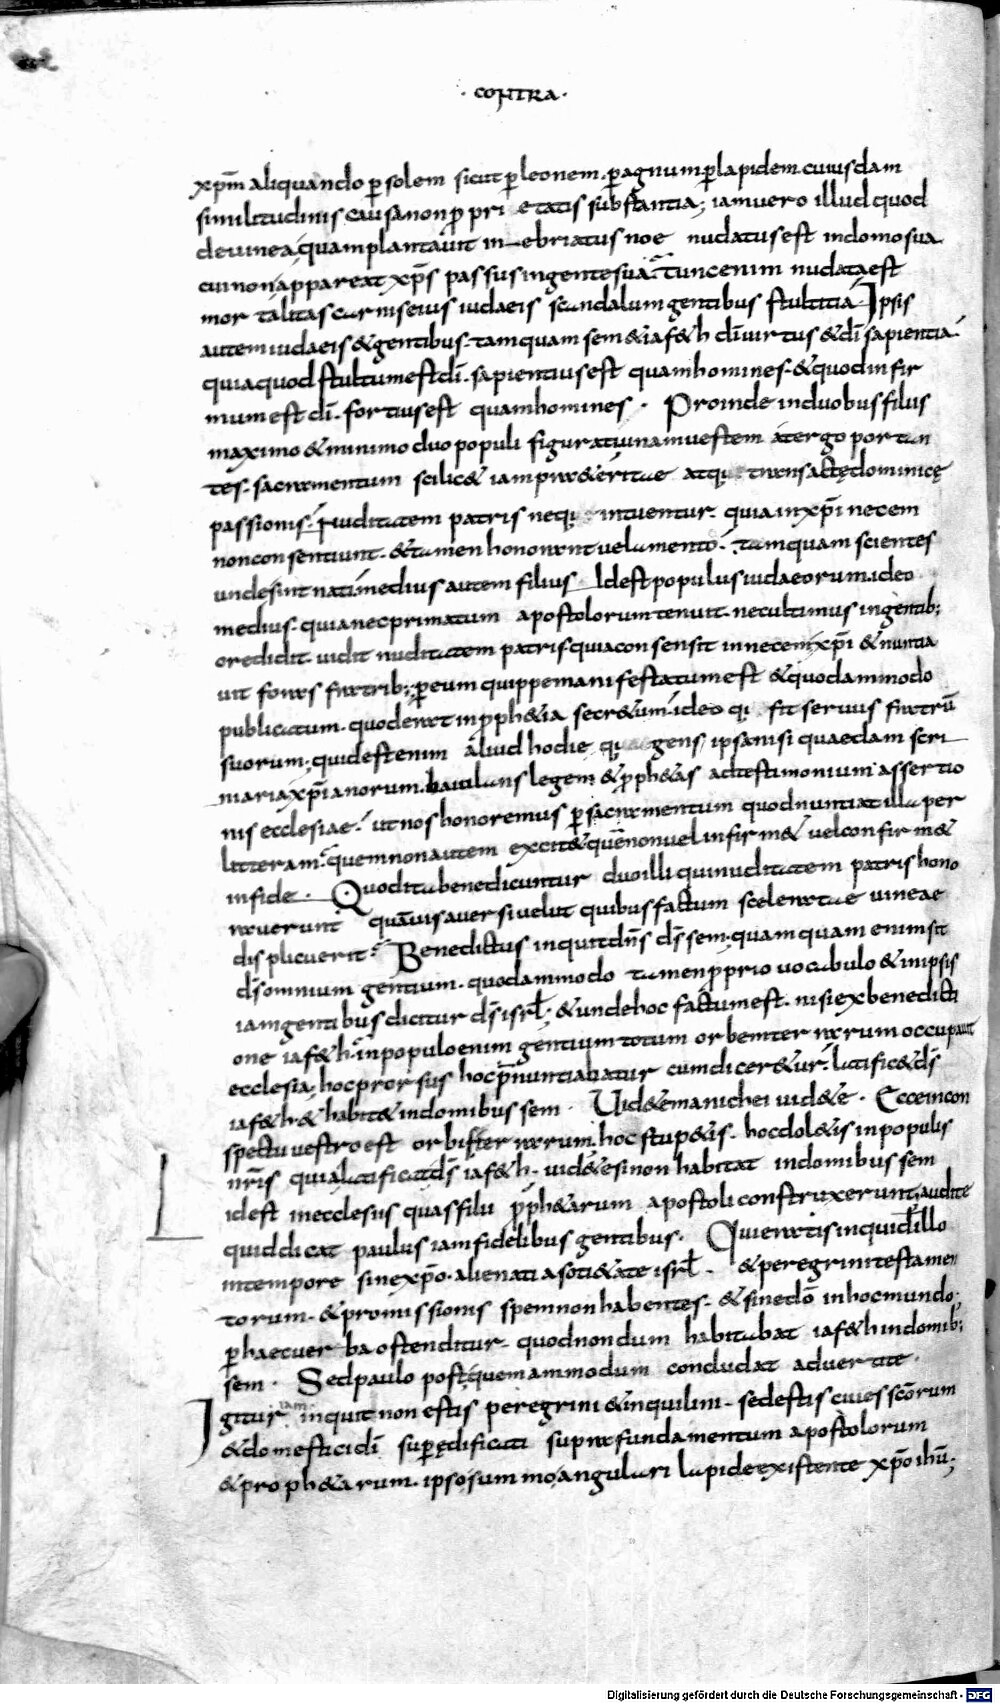 · CONTRA ·
xp̄m aliquando p̄ solem sicut p̄ leonem. p̄ agnum p̄ lapidem. cuiusdam
similitudinis causa non p̄ pri etatis substantia; iam uero illud quod
de uinea quam plantauit inebriatus noe nudatus est in domo sua
cui non appareat xp̄s passus in gente sua. Tunc enim nudata est
mortalitas carnis eius iudaeis scandalum gentibus stultitia. Ipsis
autem iudaeis & gentibus. tamquam sem & iaf&h dī uirtus & dī sapientia.
quia quod stultum est dī. sapientius est quam homines. & quod infir
mum est dī. fortius est quam homines. Proinde in duobus filiis
maximo & minimo duo populi figurati unam uestem a tergo portan
tes. sacramentum scilic& iam pra&eritae atq; transactę dominicę
passionis. Nuditatem patris neq; intuentur. quia in xp̄i necem
non consentiunt. & tamen honorant uelamento. tamquam scientes
unde sint nati. medius autem filius. Idest populus iudaeorum. ideo
medius. quia nec primatum apostolorum tenuit. nec ultimus in gentib;
credidit. uidit nuditatem patris. quia consensit in necem xp̄i & nuntia
uit foras fratrib; p̄ eum quippe manifestatum est & quodammodo
publicatum. quod erat in p̄ph&ia secr&um. ideo q; fit seruus fratrū
suorum; quid est enim aliud hodie q gens ipsa nisi quaedam scri
niaria xp̄ianorum. baiulans legem & p̄ph&as ad testimonium assertio
nis ecclesiae. ut nos honoremus p̄ sacramentum quod nuntiat illa per
litteram. quem non autem excit& quē non uel infirm& uel confirm&
in fide. Quod ita benedicuntur duo illi qui nuditatem patris hono
rauerunt quāuis auersi uelut quibus factum sceleratae uineae
displicuerit. Benedictus inquit dn̄s ds̄ sem. quamquam enim sit
ds̄ omnium gentium. quodammodo tamen p̄prio uocabulo & in ipsis
iam gentibus dicitur ds̄ isrl̄; & unde hoc factum est. nisi ex benedicti
one iaf&h. in populo enim gentium totum orbem terrarum occupauit
ecclesia; hoc prorsus hoc p̄nuntiabatur cum dicer&ur. latific& ds̄
iaf&h. & habit& in domibus sem. Uid&e manichei uid&e. Ecce in con
spectu uestro est orbis terrarum. hoc stup&is. hoc dol&is in populis
nr̄is quia latificat ds̄ iaf&h. uid&e si non habitat in domibus sem
idest in ecclesiis quas filii p̄ph&arum apostoli construxerunt, audite
quid dicat paulus iam fidelibus gentibus. Qui eratis inquid illo
in tempore sine xp̄o. alienati a soti&ate isrl̄. & peregrini testamen
torum. & promissionis spem non habentes. & sine dō in hoc mundo.
p̄ haec uerba ostenditur. quod nondum habitabat iaf&h in domib;
sem. Sed paulo post quemammodum concludat aduertite.
Igitur iam inquit non estis peregrini & inquilini. sed estis ciues scōrum
& domestici dī supędificati supra fundamentum apostolorum
& proph&arum. ipso summo angulari lapide existente xp̄o ihū;